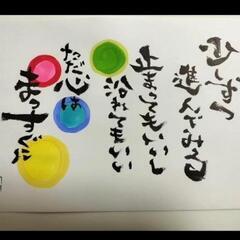 少しずつ
進んでみる
止まってもいいし
ただ心は
まっすぐに